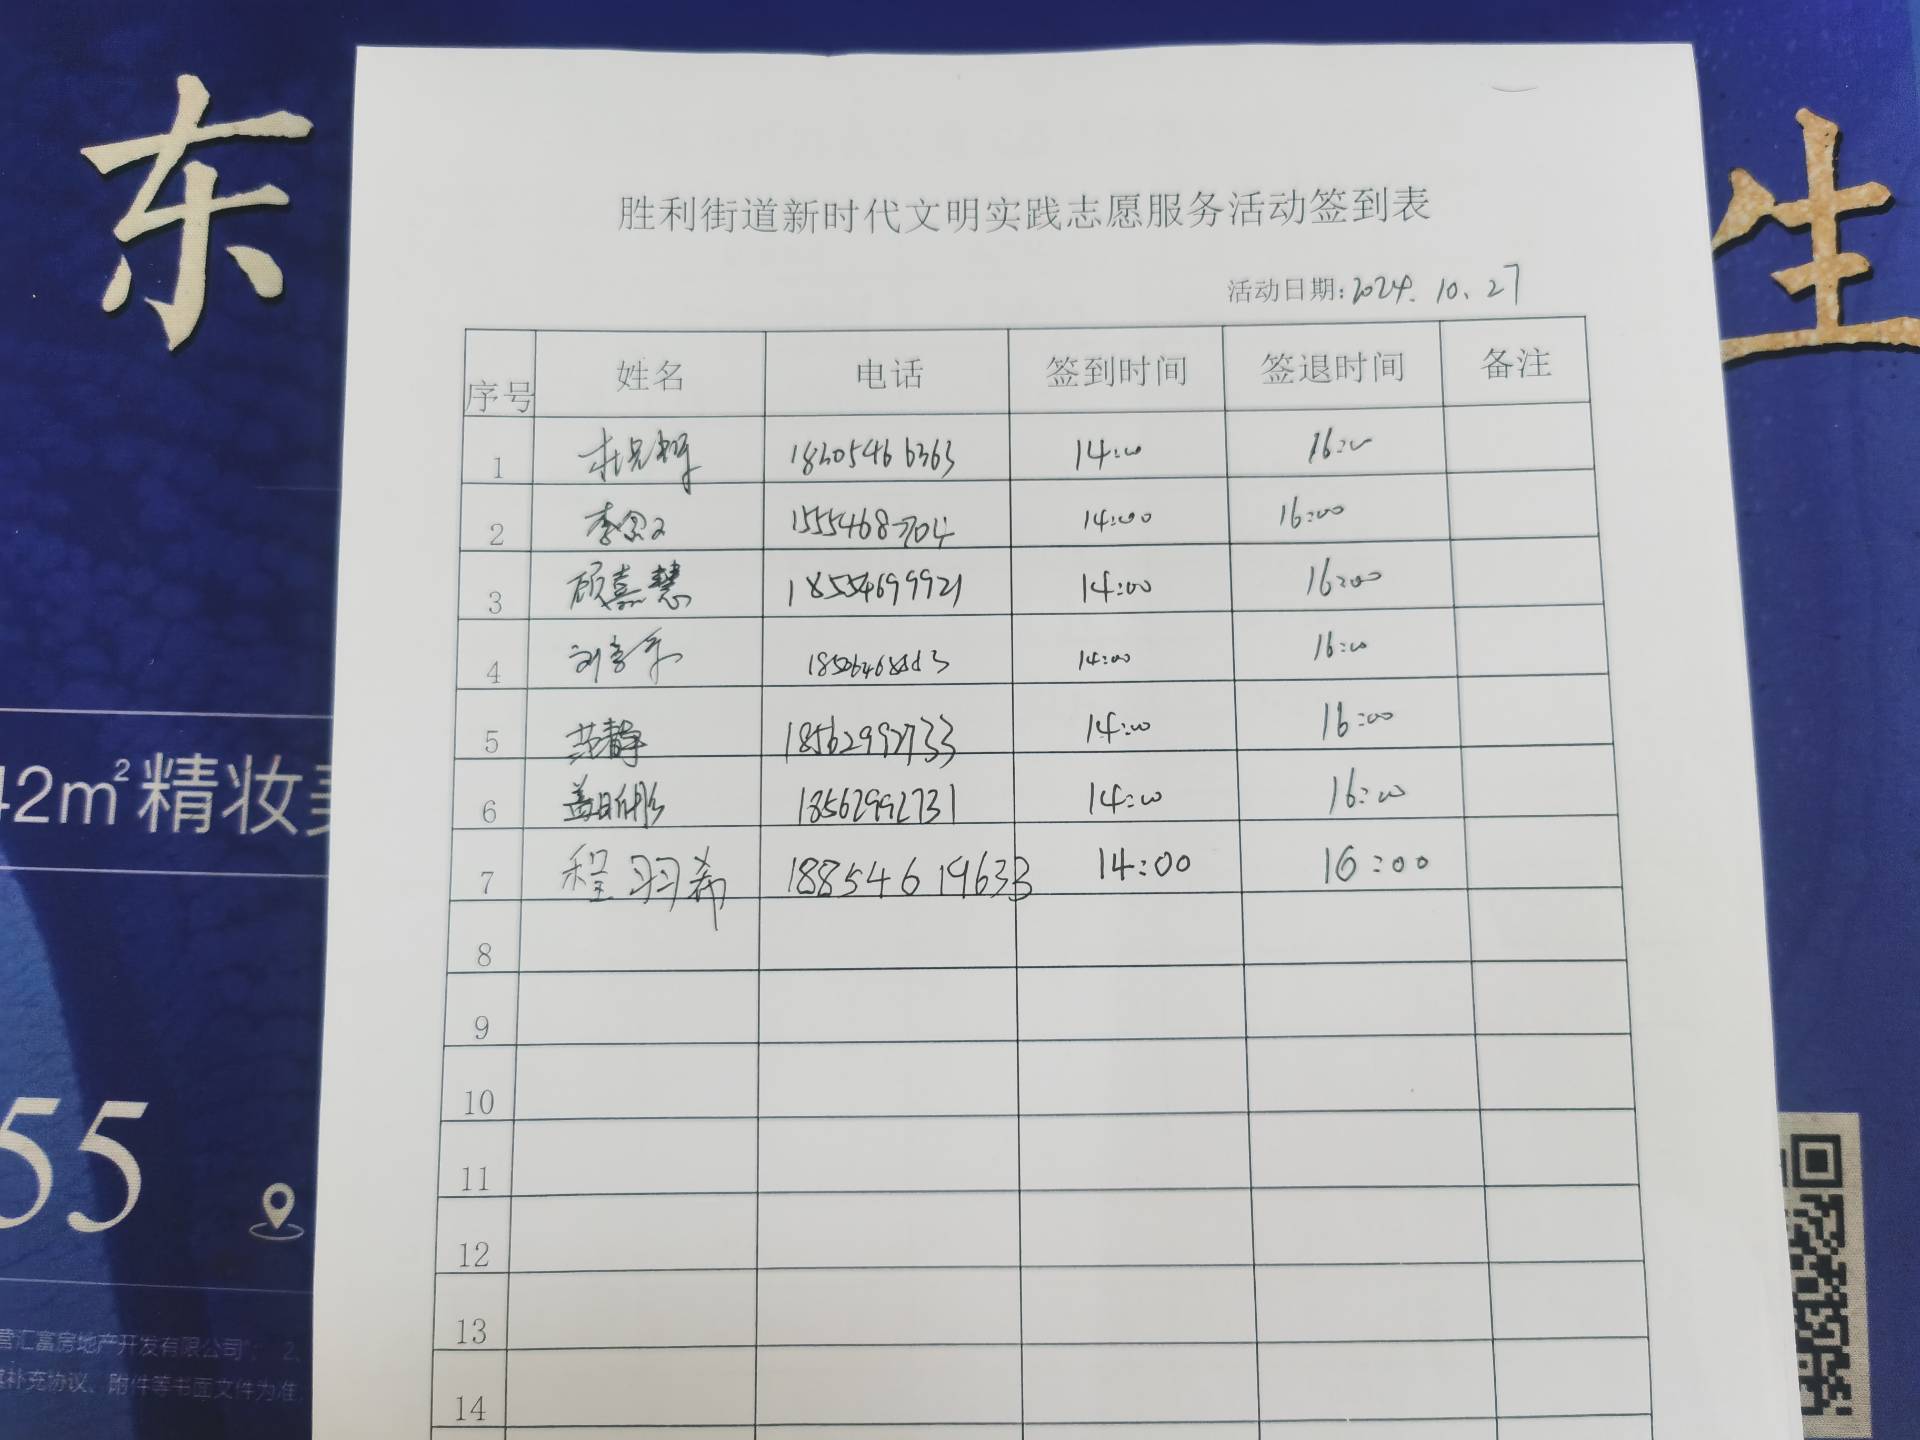 东
生
胜利街道新时代文明实践志愿服务活动签到表
活动日期:2024.10.27
序号 姓名 电话 签到时间 签退时间 备注
1 18305466363 14:00 16:00
2 14:00 16:00
3 顾嘉慧 18554699921 14:00 16:00
4 14:00 16:00
5 范静 18562992733 14:00 16:00
6 18562992731 14:00 16:00
7 程羽希 18854619633 14:00 16:00
8
9
10
11
12
13
14
42m²精妆
55
营汇富房地产开发有限公司"; 2、
补充协议、附件等书面文件为准